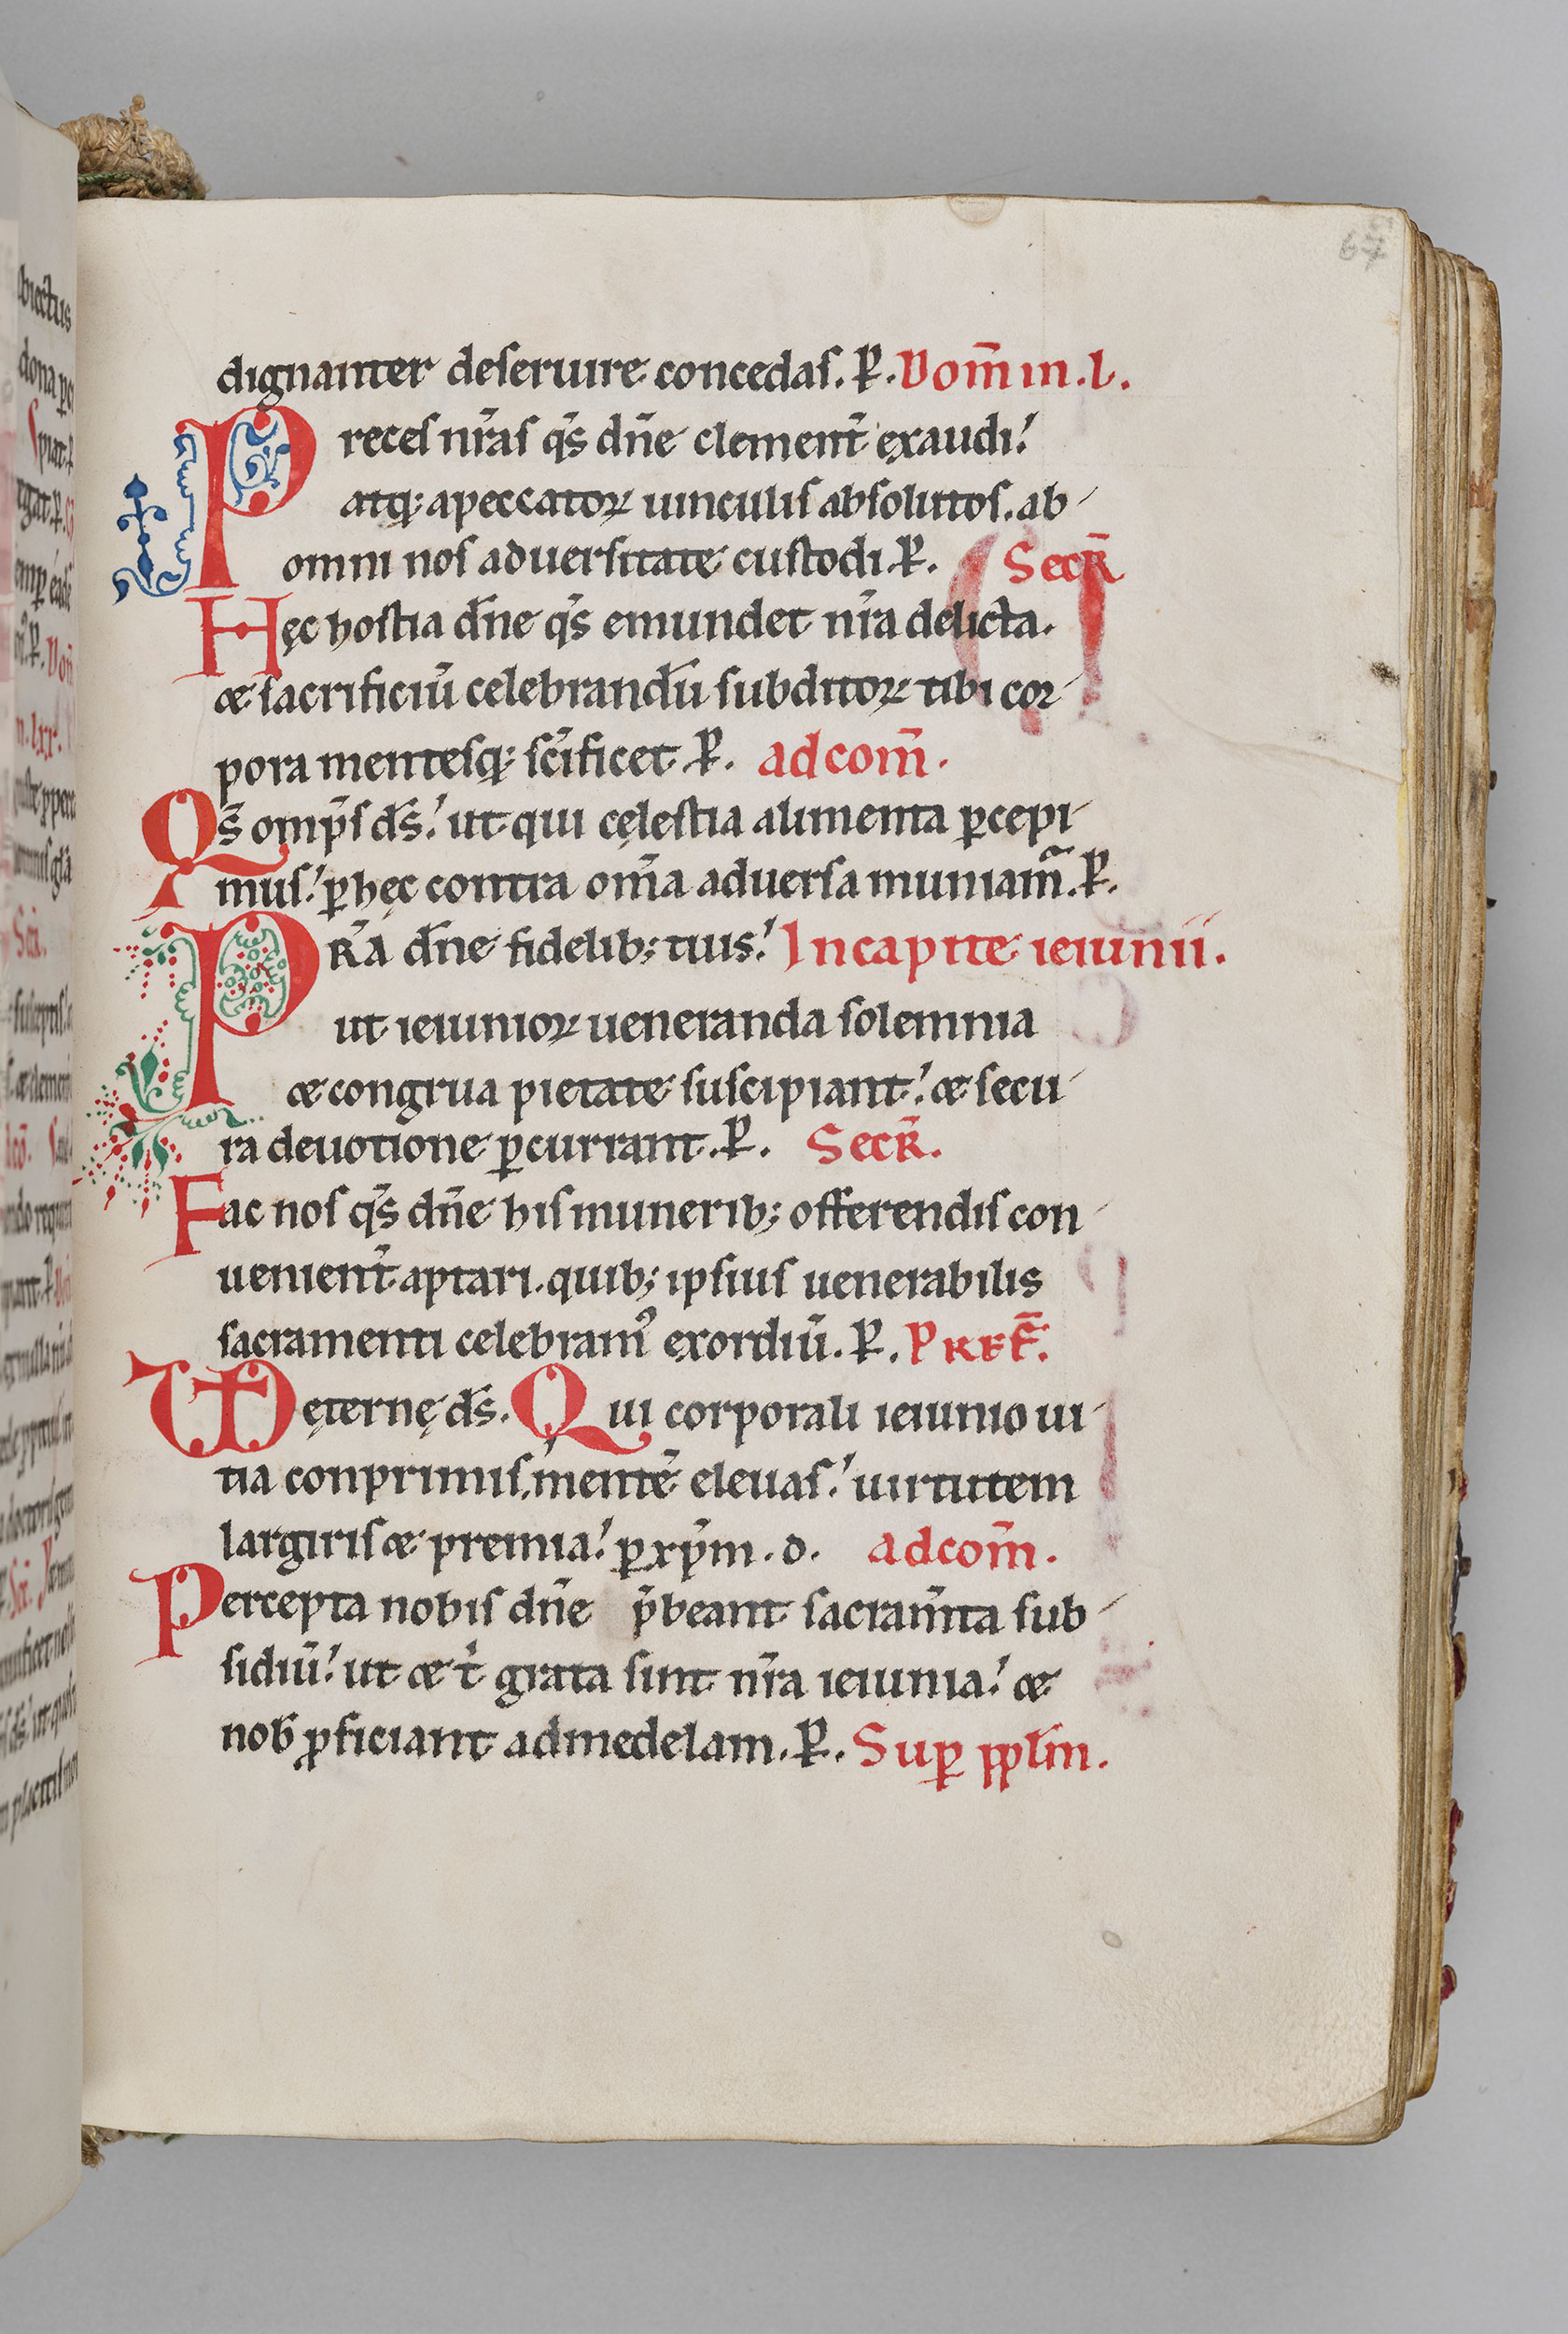 67
dignanter deseruire concedas. P̄. Dom̄ in .L.
Preces nr̄as qs̄ dn̄e clement̄ exaudi!
atq; apeccatoꝝ uinculis absolutos. ab
omni nos aduersitate custodi. P̄. Secr̄
Hęc hostia dn̄e qs̄ emundet nr̄a delicta.
& sacrificiū celebrandū subditoꝝ tibi cor
pora mentesq; sc̄ificet. P̄. ad com̄.
Qs̄ omp̄s ds̄! ut qui cęlestia alimenta ꝑcepi
mus! ꝑ hęc contra om̄ia aduersa muniam̃. P̄.
PRā dn̄e fidelib; tuis! In capite ieiunii.
ut ieiunioꝝ ueneranda solemnia
& congrua pietate suscipiant! & secu
ra deuotione ꝑcurrant. P̄. Secr̄.
Fac nos qs̄ dn̄e his munerib; offerendis con
uenient̄ aptari. quib; ipsius uenerabilis
sacramenti celebramꝰ exordiū. P̄. PREF̄.
VD ęternę ds̄. Qui corporali ieiunio ui
tia conprimis, mentē eleuas! uirtutem
largiris & premia! ꝑ xp̄m. d. ad com̄.
Percepta nobis dn̄e p̄beant sacram̄ta sub
sidiū! ut & t̄ grata sint nr̄a ieiunia! &
nob̄ ꝓficiant ad medelam. P̄. Suꝑ pp̄lm.